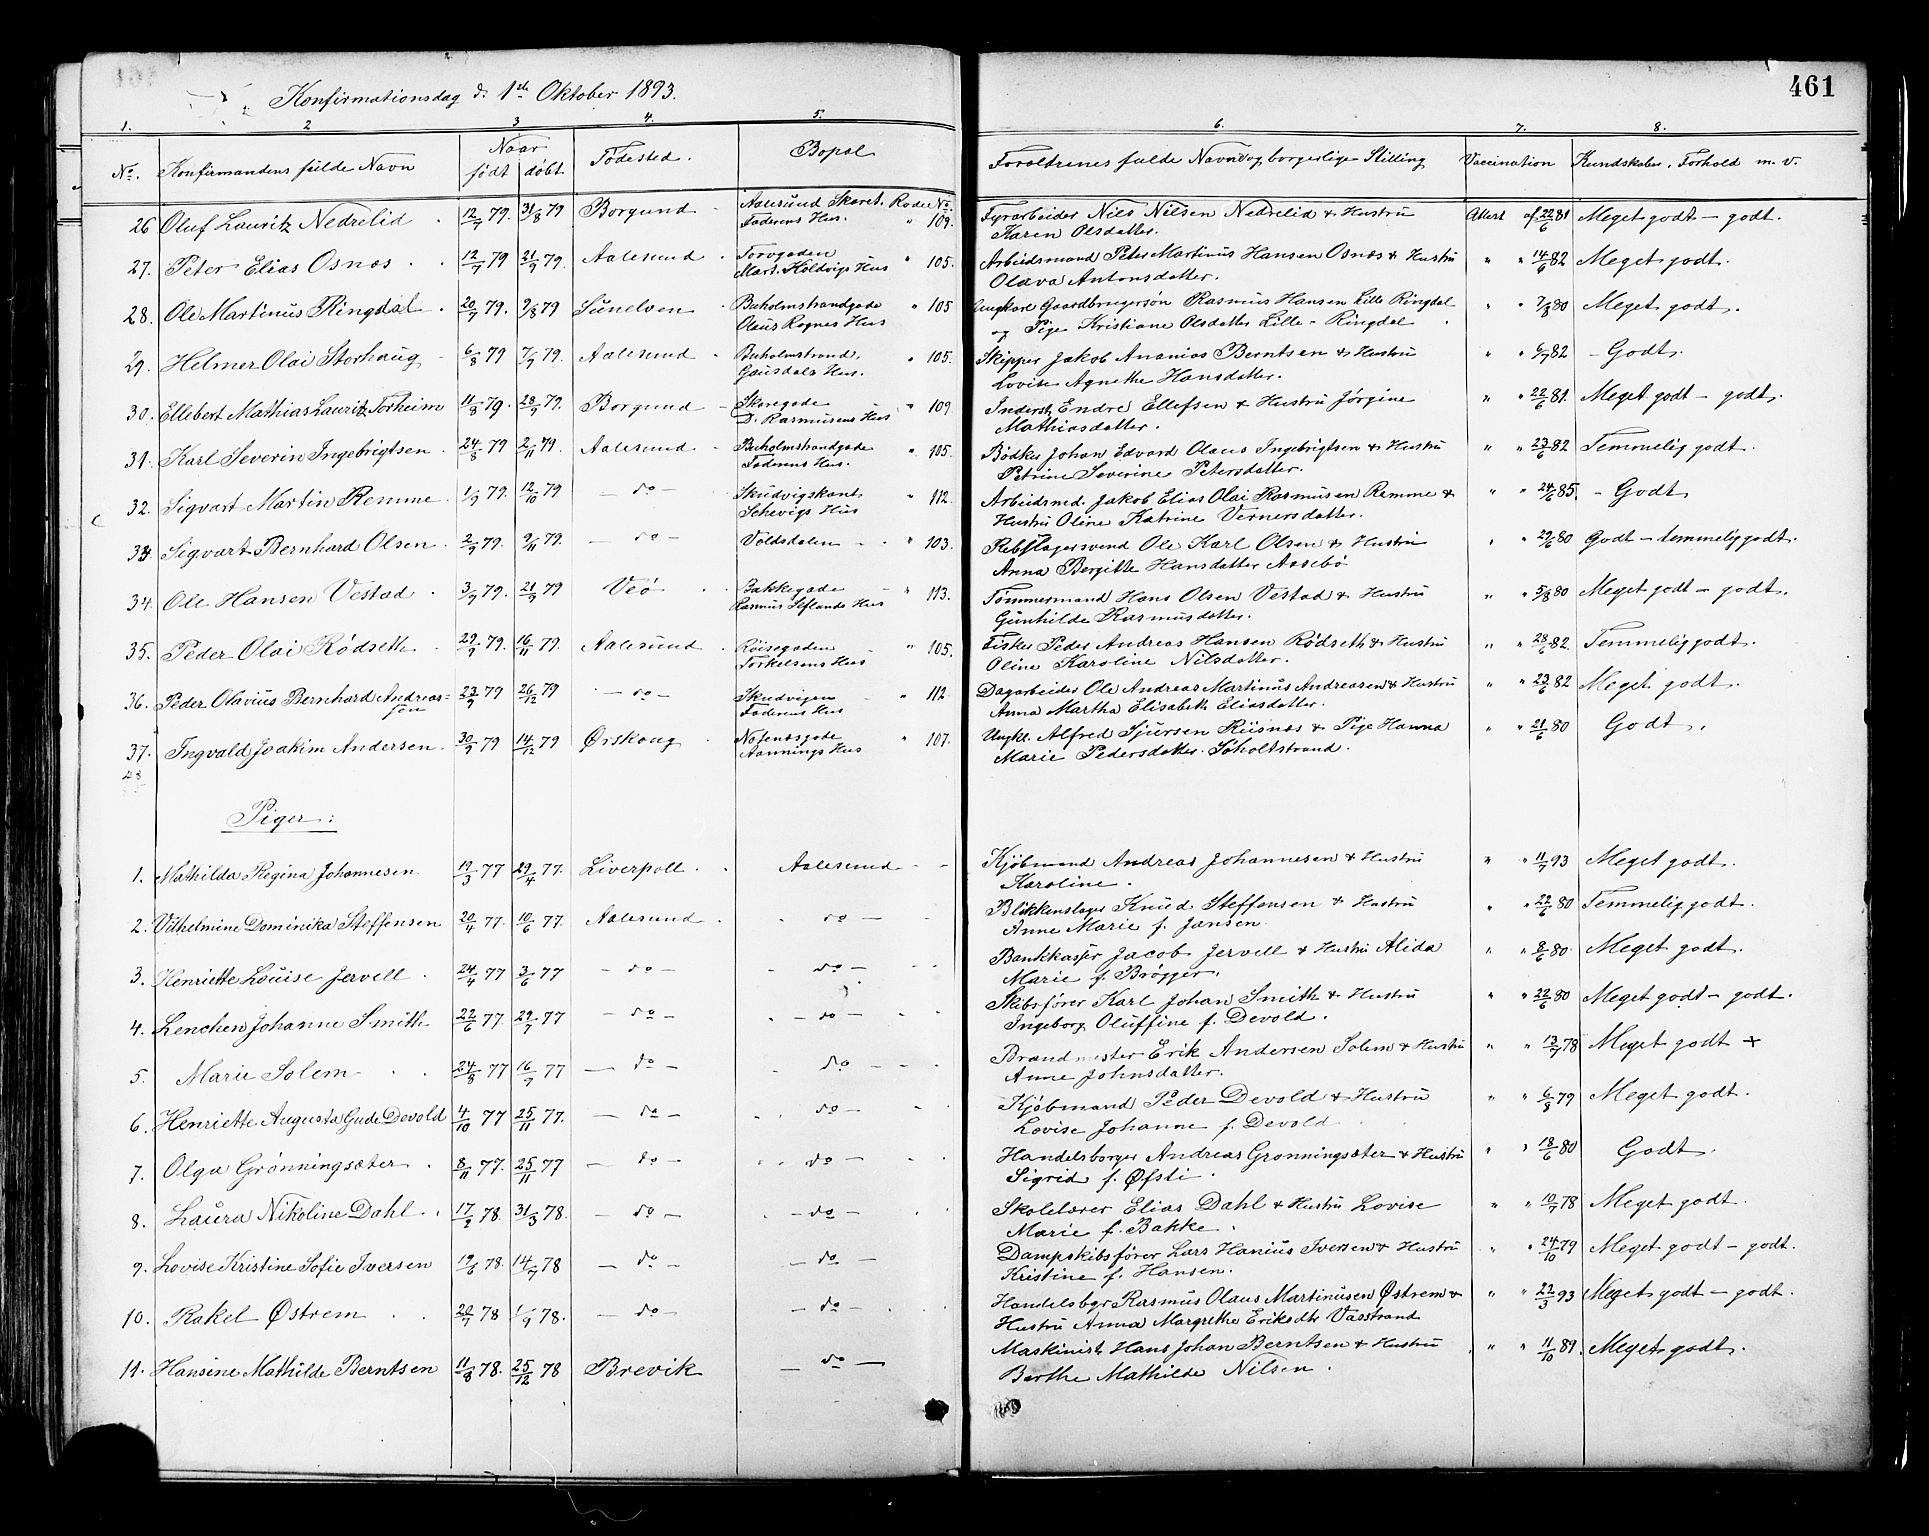 461
Konfirmationsdag d. 1ste Oktober 1893.
1. 2 3 4. 5. 6. 7. 8.
No. Konfirmandens fulde Navn Naar født døbt Fødested. Bopæl Forældrenes fulde Navn og borgerlige Stilling Vaccination Kundskaber, Forhold m. v.
26 Oluf Lauritz Nedrelid 12/7 79. 31/8 79 Borgund Aalesund Skaret. Rode No. Fyrarbeider Nils Nilsen Nedrelid & Hustru Attest af 22/6 81 Meget godt – godt.
Faderens Hus. " 109. Karen Olsdatter.
27. Peter Elias Osnes 12/7 79 21/9 79. Aalesund Torvgaden " 105. Arbeidsmand Peter Martinus Hansen Osnes & Hustru " " 14/6 82 Meget godt.
Mart. Holdvigs Hus Olava Antonsdatter.
28. Ole Martinus Ringdal 20/7 79. 9/8 79 Sunelven Buholmstrandgade " 105 Ungkarl Gaardbrugersøn Rasmus Hansen Lille Ringdal " " 7/8 80 Meget godt.
Olaus Rognes Hus og Pige Kristiane Olsdatter Lille-Ringdal
29. Helmer Olai Storhaug 6/8 79 7/9 79. Aalesund Buholmstrand. " 105. Skipper Jakob Ananias Berntsen & Hustru " " 6/7 82 – Godt.
Gausdals Hus. Lovise Agnethe Hansdatter.
30. Ellebert Mathias Lauritz Torheim 11/8 79. 28/9 79. Borgund Skaregade " 109. Inderst Endre Ellefsen & Hustru Jørgine " " 22/6 81. Meget godt – godt.
D. Rasmusens Hus Mathiasdatter.
31. Karl Severin Ingebrigtsen 24/8 79 2/11 79. Aalesund Buholmstrandgade " 105. Bødker Johan Edvard Olaus Ingebrigtsen & Hustru " " 23/6 82 Temmelig godt.
Faderens Hus. Petrine Severine Petersdatter.
32. Sigvart Martin Remme 1/9 79. 12/10 79 – do – Skudvigskant. " 112. Arbeidsmd. Jakob Elias Olai Rasmusen Remme & " " 24/6 85. – Godt
Schevigs Hus Hustru Oline Katrine Vernersdatter.
33. Sigvart Bernhard Olsen 2/9 79. 9/11 79. – do – Voldsdalen " 103. Rebslagersvend Ole Karl Olsen & Hustru " " 29/6 80 Godt – temmelig godt.
Anna Bergitte Hansdatter Aasebø
34. Ole Hansen Vestad 3/9 79. 21/9 79 Veø Bakkegade " 113. Tømmermand Hans Olsen Vestad & Hustru " " 5/8 80 Meget godt – godt.
Rasmus Seflands Hus Gunhilde Rasmusdatter.
35. Peder Olai Rødseth 29/9 79. 16/11 79. Aalesund Røisegaden " 105. Fisker Peder Andreas Hansen Rødseth & Hustru " " 28/6 82. Temmelig godt.
Torkelsens Hus Oline Karoline Nilsdatter.
36. Peder Olavius Bernhard Andreassen 23/9 79 26/12 79 – do – Skudvigen " 112. Dagarbeider Ole Andreas Martinus Andreasen & Hustru " " 23/6 82 Meget godt.
Faderens Hus Anna Martha Elisabeth Eliasdatter.
37. Ingvald Joakim Andersen 30/9 79 14/12 79 Ørskoug Notenesgade " 107. Ungkl. Alfred Sjursen Riisnes & Pige Hanna " " 21/6 80 Godt.
Aannings Hus Marie Pedersdatter Søholtstrand.
Piger:
1. Mathilda Regina Johannesen 19/3 77 29/4 77. Liverpoll Aalesund Kjøbmand Andreas Johannesen & Hustru " " 11/7 93 Meget godt.
Karoline.
2. Vilhelmine Dominika Steffensen 20/4 77. 10/6 77. Aalesund – do – Blikkenslager Knud Steffensen & Hustru " " 22/6 80 Temmelig godt.
Anne Marie f. Jansen
3. Henriette Louise Jervell 24/4 77 3/6 77 – do – – do – Bankkasser Jacob Jervell & Hustru Alida " " 8/6 80 Meget godt.
Marie f. Brøgger.
4. Lenchen Johanne Smith 22/6 77. 29/7 77 – do – – do – Skibsfører Karl Johan Smith & Hustru " " 22/6 80 Meget godt – godt.
Ingeborg Oluffine f. Devold.
5. Marie Solem 24/8 77 16/9 77 – do – – do – Brandmester Erik Andersen Solem & Hustru " " 13/7 78 Meget godt +
Anne Johnsdatter.
6. Henriette Augusta Gude Devold 4/10 77 25/11 77. – do – – do – Kjøbmand Peder Devold & Hustru " " 6/8 79 Meget godt.
Lovise Johanne f. Devold
7. Olga Grønningsæter 8/11 77. 25/11 77 – do – – do – Handelsborger Andreas Grønningsæter & Hustru " " 18/6 80 Godt.
Sigrid f. Øfsti
8. Laura Nikoline Dahl 17/2 78. 31/3 78. – do – – do – Skolelærer Elias Dahl & Hustru Lovise " " 10/7 78 Meget godt.
Marie f. Bakke.
9. Lovise Kristine Sofie Iversen 19/6 78. 14/7 78 – do – – do – Dampskibsfører Lars Hanius Iversen & Hustru " " 24/10 79 Meget godt – godt.
Kristine f. Hansen.
10. Rakel Østrem 20/7 78 1/9 78. – do – – do – Handelsbgr Rasmus Olaus Martinusen Østrem & " " 22/3 93 Meget godt – godt.
Hustru Anna Margrethe Eriksdtr Vasstrand
11. Hansine Mathilde Berntsen 11/8 78. 25/12 78 Brevik – do – Maskinist Hans Johan Berntsen & Hustru " " 11/10 89. Meget godt.
Berthe Mathilde Nilsen.